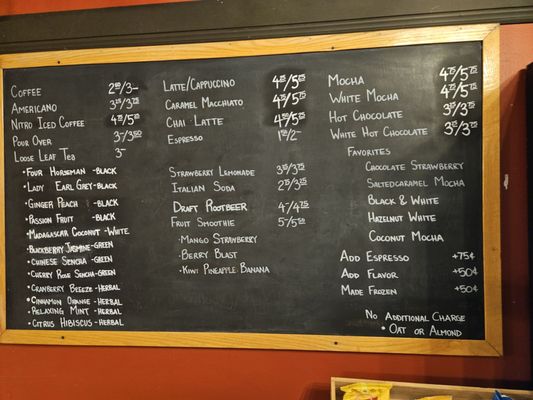 COFFEE 2⁵⁰/3-
AMERICANO 3²⁵/3⁷⁵
NITRO ICED COFFEE
POUR OVER
LOOSE LEAF TEA 3-
• FOUR HORSEMAN - BLACK
• LADY EARL GREY - BLACK
• GINGER PEACH - BLACK
• PASSION FRUIT - BLACK
• MADAGASCAR COCONUT - WHITE
• BLACKBERRY JASMINE - GREEN
• CHINESE SENCHA - GREEN
• CHERRY ROSE SENCHA - GREEN
• CRANBERRY BEEZE - HERBAL
• CINNAMON ORANGE - HERBAL
• RELAXING MINT - HERBAL
• CITRUS HIBISCUS - HERBAL
LATTE/CAPPUCCINO
CARAMEL MACCHIATO
CHAI LATTE
ESPRESSO
STRAWBERRY LEMONADE
ITALIAN SODA
DRAFT ROOTBEER
FRUIT SMOOTHIE
• MANGO STRAWBERRY
• BERRY BLAST
• KIWI PINEAPPLE BANANA
MOCHA
WHITE MOCHA
HOT CHOCOLATE
WHITE HOT CHOCOLATE
FAVORITES
CHOCOLATE STRAWBERRY
SALTEDCARAMEL MOCHA
BLACK & WHITE
HAZELNUT WHITE
COCONUT MOCHA
ADD ESPRESSO +75¢
ADD FLAVOR +50¢
MADE FROZEN +50¢
NO ADDITIONAL CHARGE
• OAT OR ALMOND